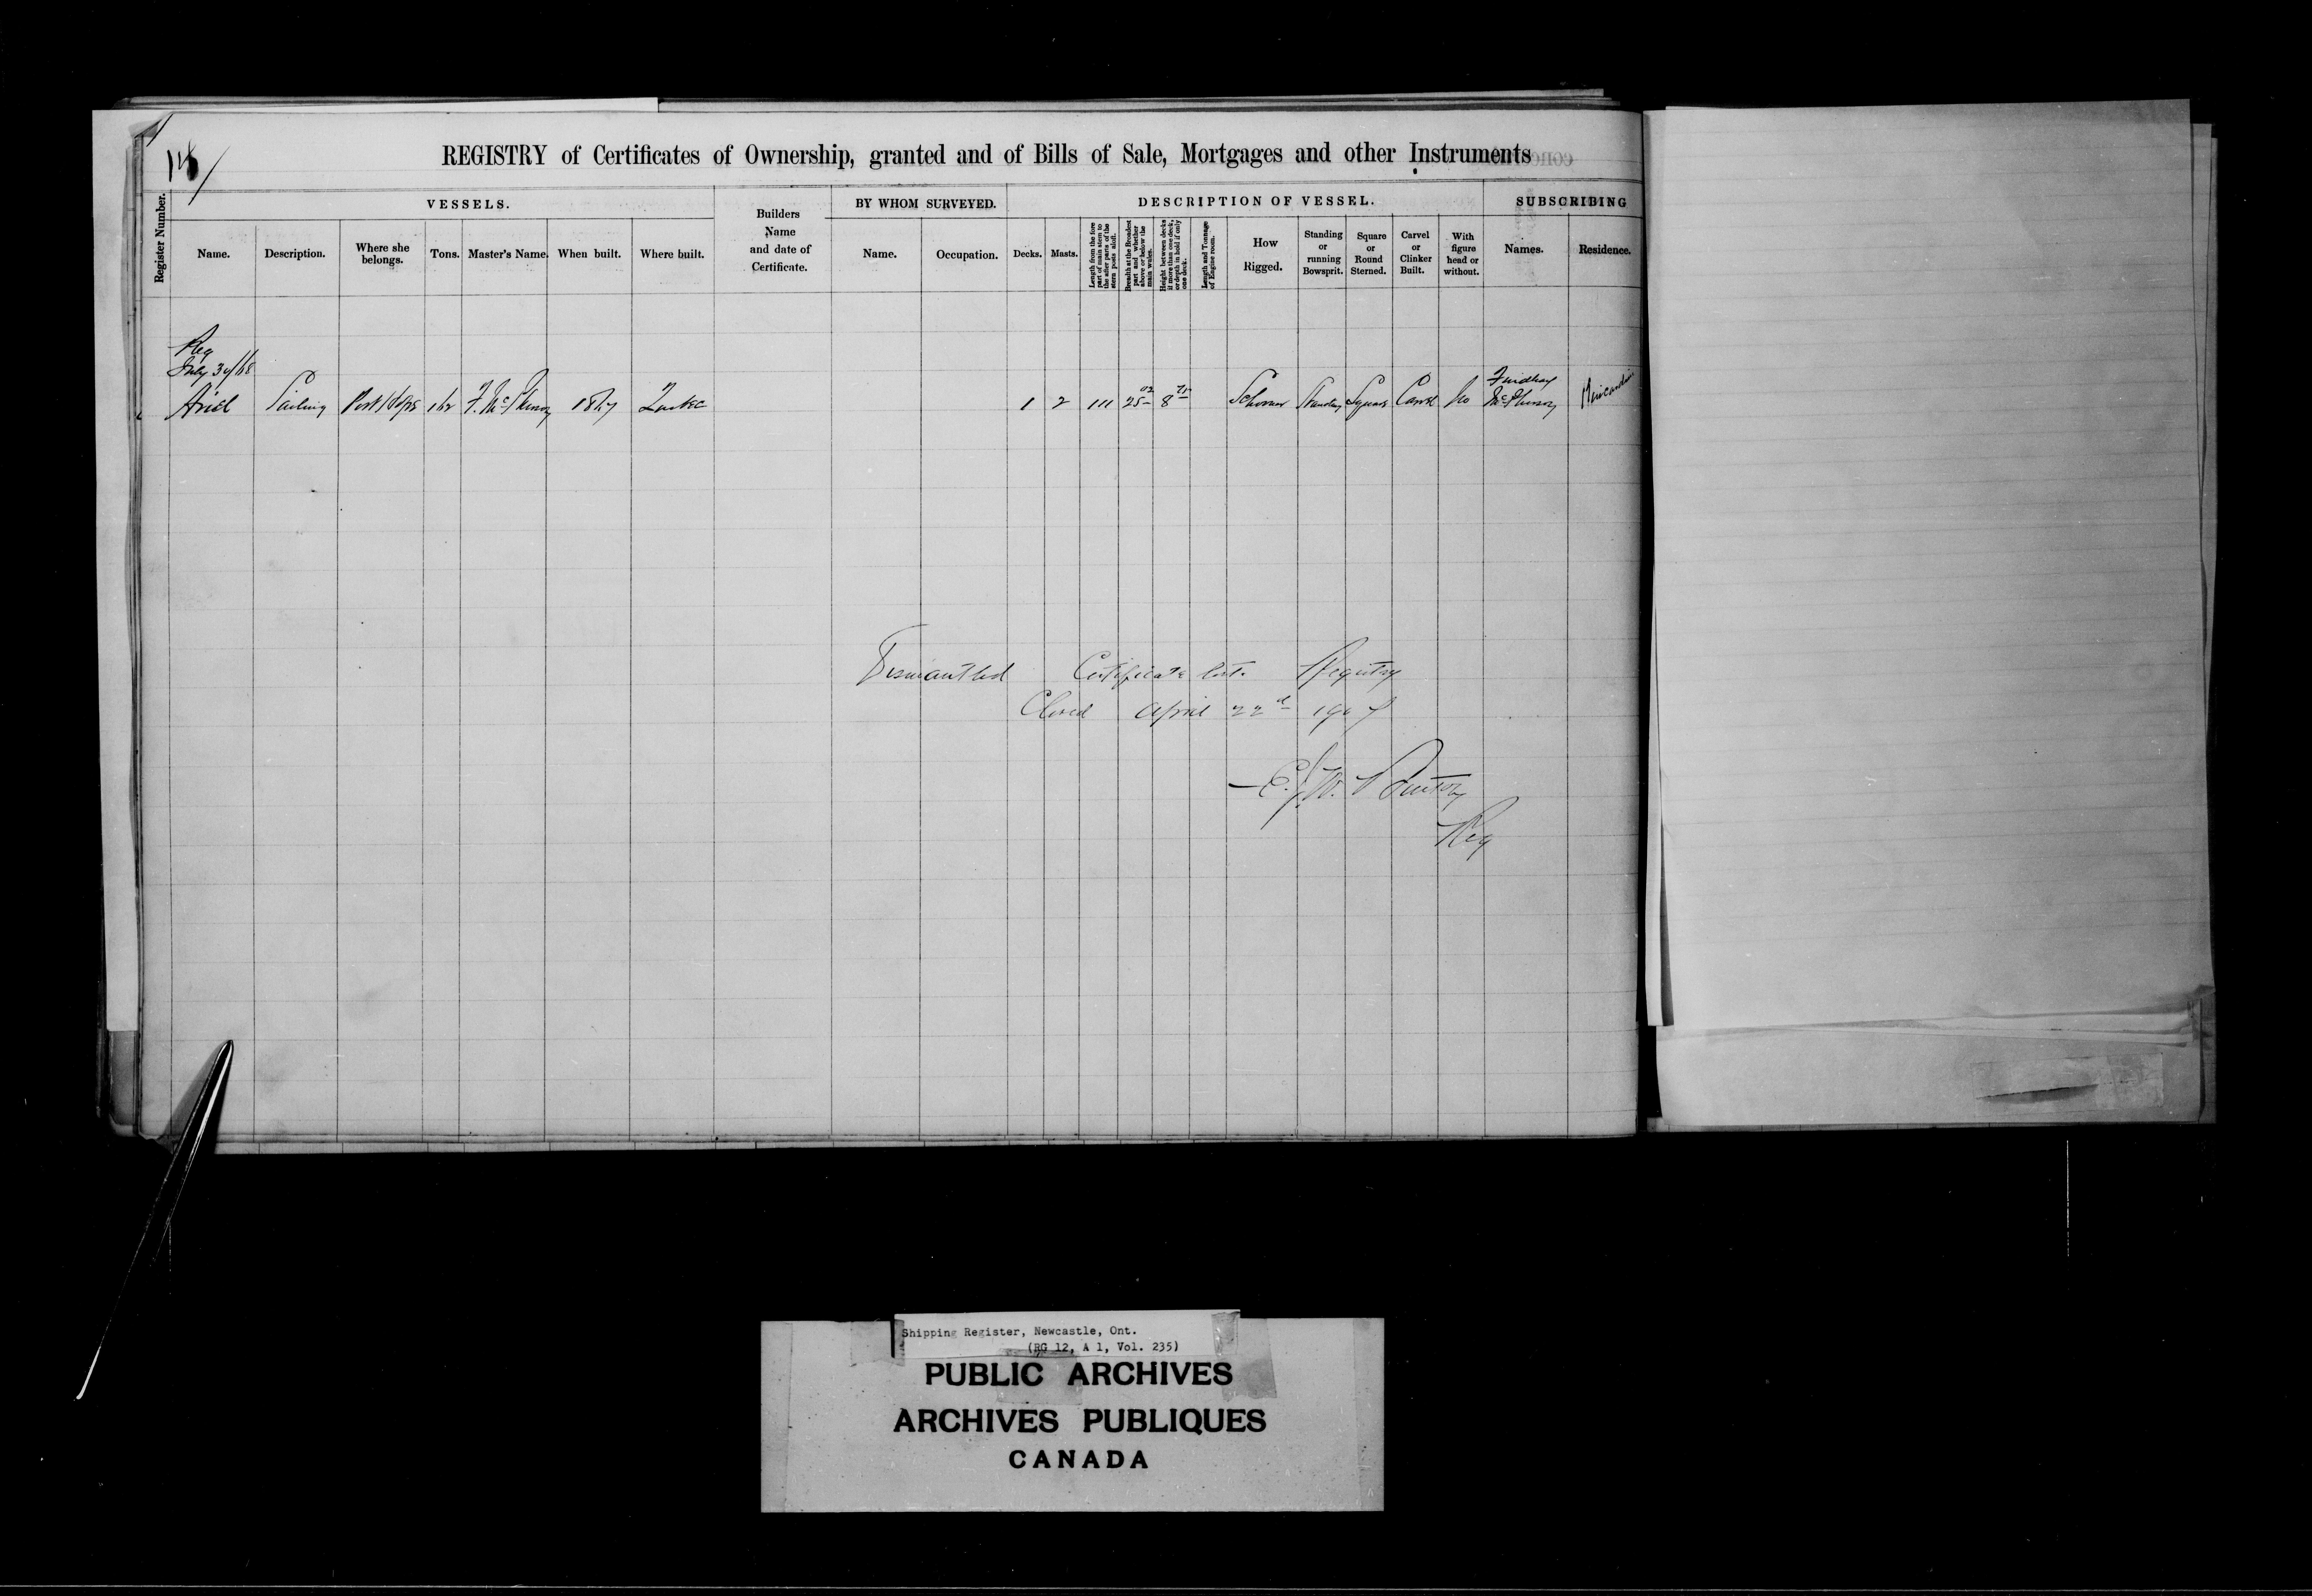 REGISTRY of Certificates of Ownership, granted and of Bills of Sale, Mortgages and other Instruments
Register Number.
VESSELS.
Builders Name and date of Certificate.
BY WHOM SURVEYED.
DESCRIPTION OF VESSEL.
SUBSCRIBING
Name.
Description.
Where she belongs.
Tons.
Master's Name.
When built.
Where built.
Name.
Occupation.
Decks.
Masts.
Length from the fore part of main stem to the after parts of the stern posts aloft.
Breadth at the Broadest part and whether above or below the main wales.
Height between decks if more than one deck, or depth in hold if only one deck.
Length and Tonnage of Engine room.
How Rigged.
Standing or running Bowsprit.
Square or Round Sterned.
Carvel or Clinker Built.
With figure head or without.
Names.
Residence.
Reg
July 30/68
Ariel Sailing Port Hope 162 F. McPherson 1867 Quebec 1 2 111 25 02 8 75 Schooner Standing Square Carvel No Findlay McPherson Kincardine
Dismantled Certificate lost. Registry
Closed April 22d 1907
Reg
Shipping Register, Newcastle, Ont.
(RG 12, A 1, Vol. 235)
PUBLIC ARCHIVES
ARCHIVES PUBLIQUES
CANADA